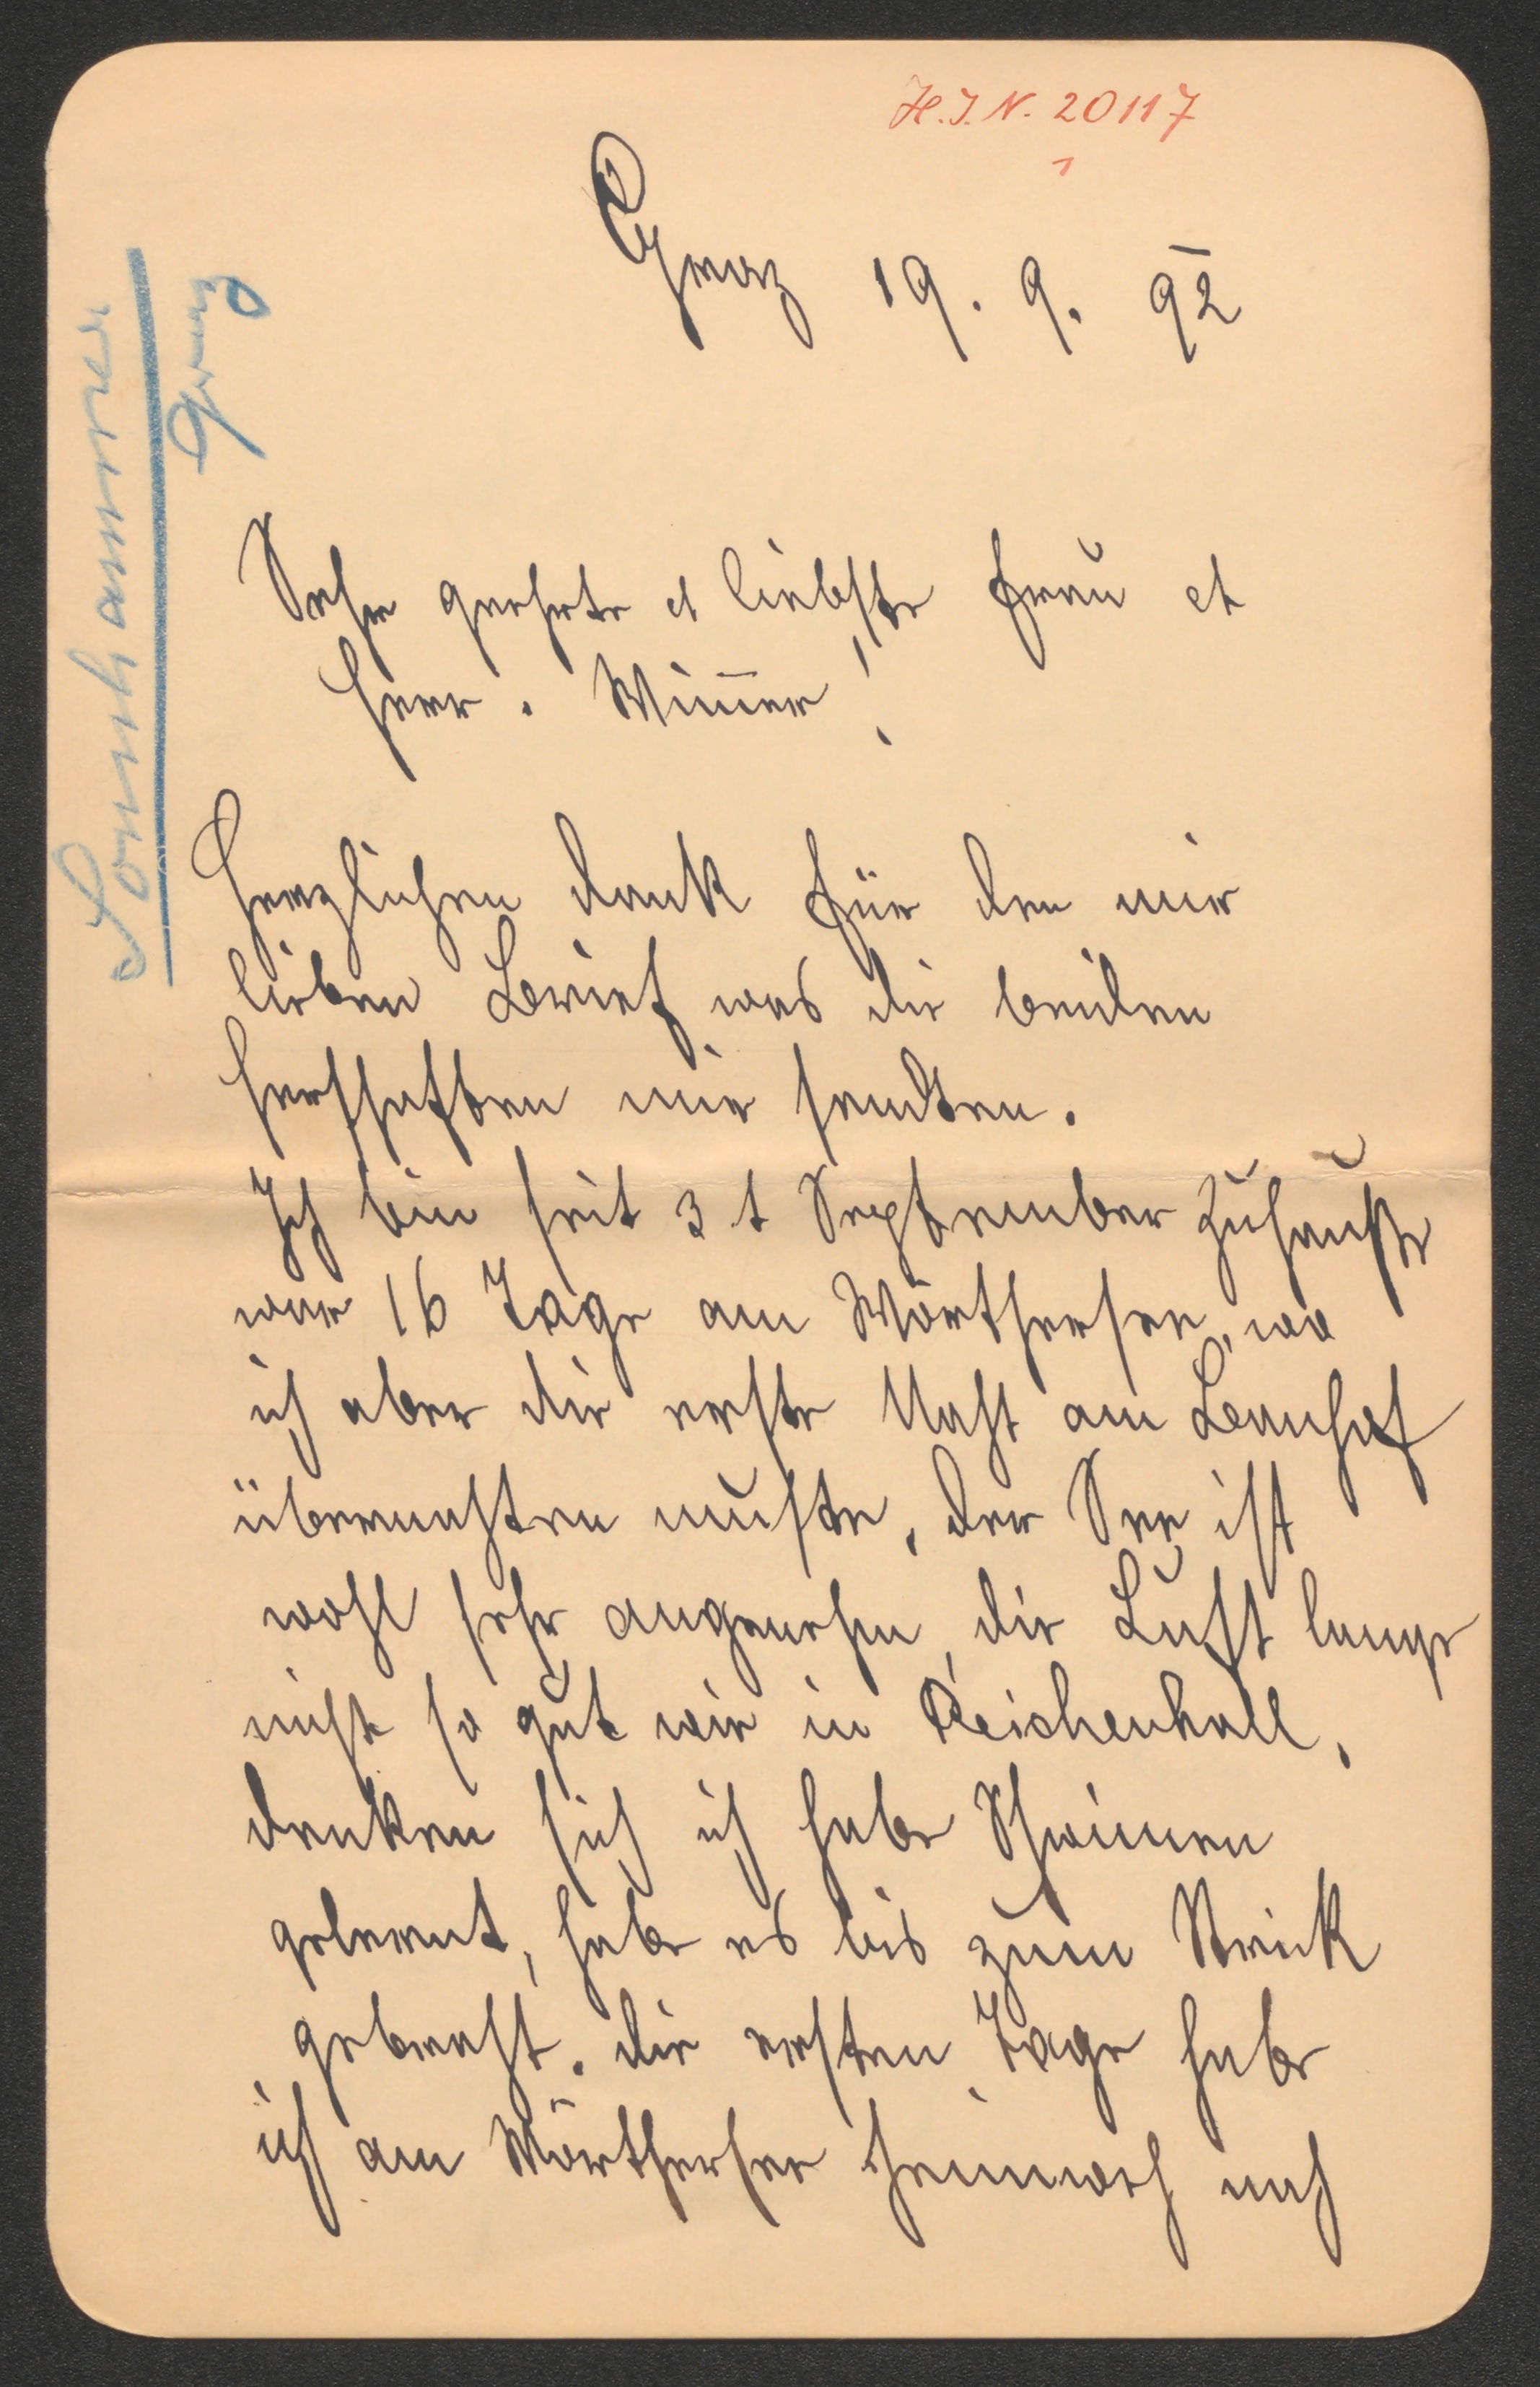 H.I.N. 20117
1
Graz 19. 9. 92
Sonnhammer
Graz
Sehr geehrte et liebste Frau et
Herr. Wim̅er!
Herzlichen dank für den mir
lieben Brief was die beiden
Herschaften mir sendten.
Ich bin seit 3 t September zuhauße
war 16 Tage am Wörthersee, wo
ich aber die erste Nacht am Banhof
übernachten muste, der See ist
wohl sehr angenehm, die Luft lange
nicht so gut wie in Reichenhall,
denken sich ich habe Schwimen
gelernt, habe es bis zum Strick
gebracht. die ersten Tage habe
ich am Wörthersee Heimweh nach